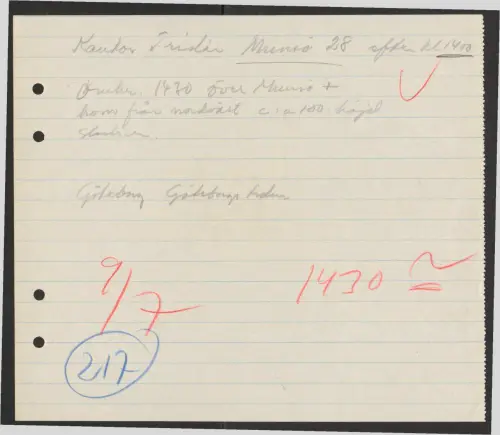 Kantor Tridér Munsö 28 efter kl 1400
1430 över Munsö +
kom från nordväst c:a 100 höjd
Göteborg Göteborgs
9/7 1430 ≃
217